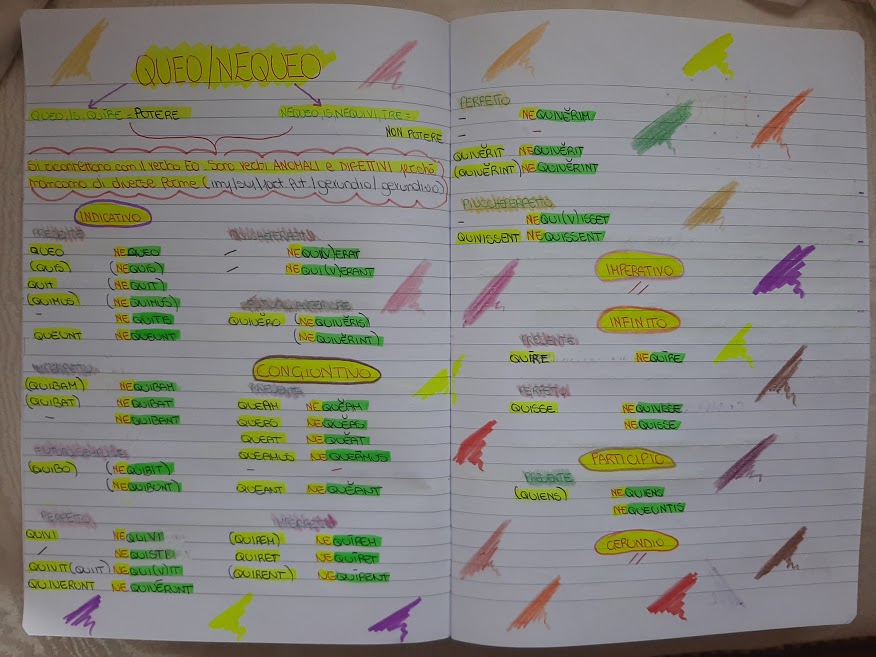 QUEO/NEQUEO
QUEO, IS, QUIRE = POTERE
NEQUEO, IS, NEQUIVI, IRE =
NON POTERE
Si coniettono con il verbo Eo. Sono verbi ANOMALI e DIFETTIVI perché
mancano di diverse forme (imp/sup/part. fut./gerundio/gerundivo)
INDICATIVO
PRESENTE
QUEO NEQUEO
(QUIS) (NEQUIS)
QUIT (NEQUIT)
(QUIMUS) (NEQUIMUS)
- NEQUITE
QUEUNT NEQUEUNT
IMPERFETTO
(QUIBAM) NEQUIBAM
(QUIBAT) NEQUIBAT
- NEQUIBANT
FUTURO SEMPLICE
(QUIBO) (NEQUIBIT)
(NEQUIBUNT)
PERFETTO
QUIVI NEQUIVI
/ NEQUISTI
QUIVIT (QUIIT) NEQUI(V)IT
QUIVERUNT NEQUIVĒRUNT
PIUCCHEPERFETTO
- NEQUI(V)ERAT
- NEQUI(V)ERANT
FUTURO ANTERIORE
QUIVĔRO (NEQUIVĔRIS)
(NEQUIVĔRINT)
CONGIUNTIVO
PRESENTE
QUEAM NEQUĔAM
QUEAS NEQUĔAS
QUEAT NEQUĔAT
QUEAMUS NEQUEĀMUS
- -
QUEANT NEQUĔANT
IMPERFETTO
(QUIREM) NEQUĪREM
QUIRET NEQUĪRET
(QUIRENT) NEQUĪRENT
PERFETTO
- NEQUIVĔRIM
- -
QUIVĔRIT NEQUIVĔRIT
(QUIVĔRINT) NEQUIVĔRINT
PIUCCHEPERFETTO
- NEQUI(V)ISSET
QUIVISSENT NEQUISSENT
IMPERATIVO
//
INFINITO
PRESENTE
QUĪRE NEQUĪRE
PERFETTO
QUISSE NEQUIVISSE
NEQUISSE
PARTICIPIO
PRESENTE
(QUIENS) NEQUIENS
NEQUEUNTIS
GERUNDIO
//